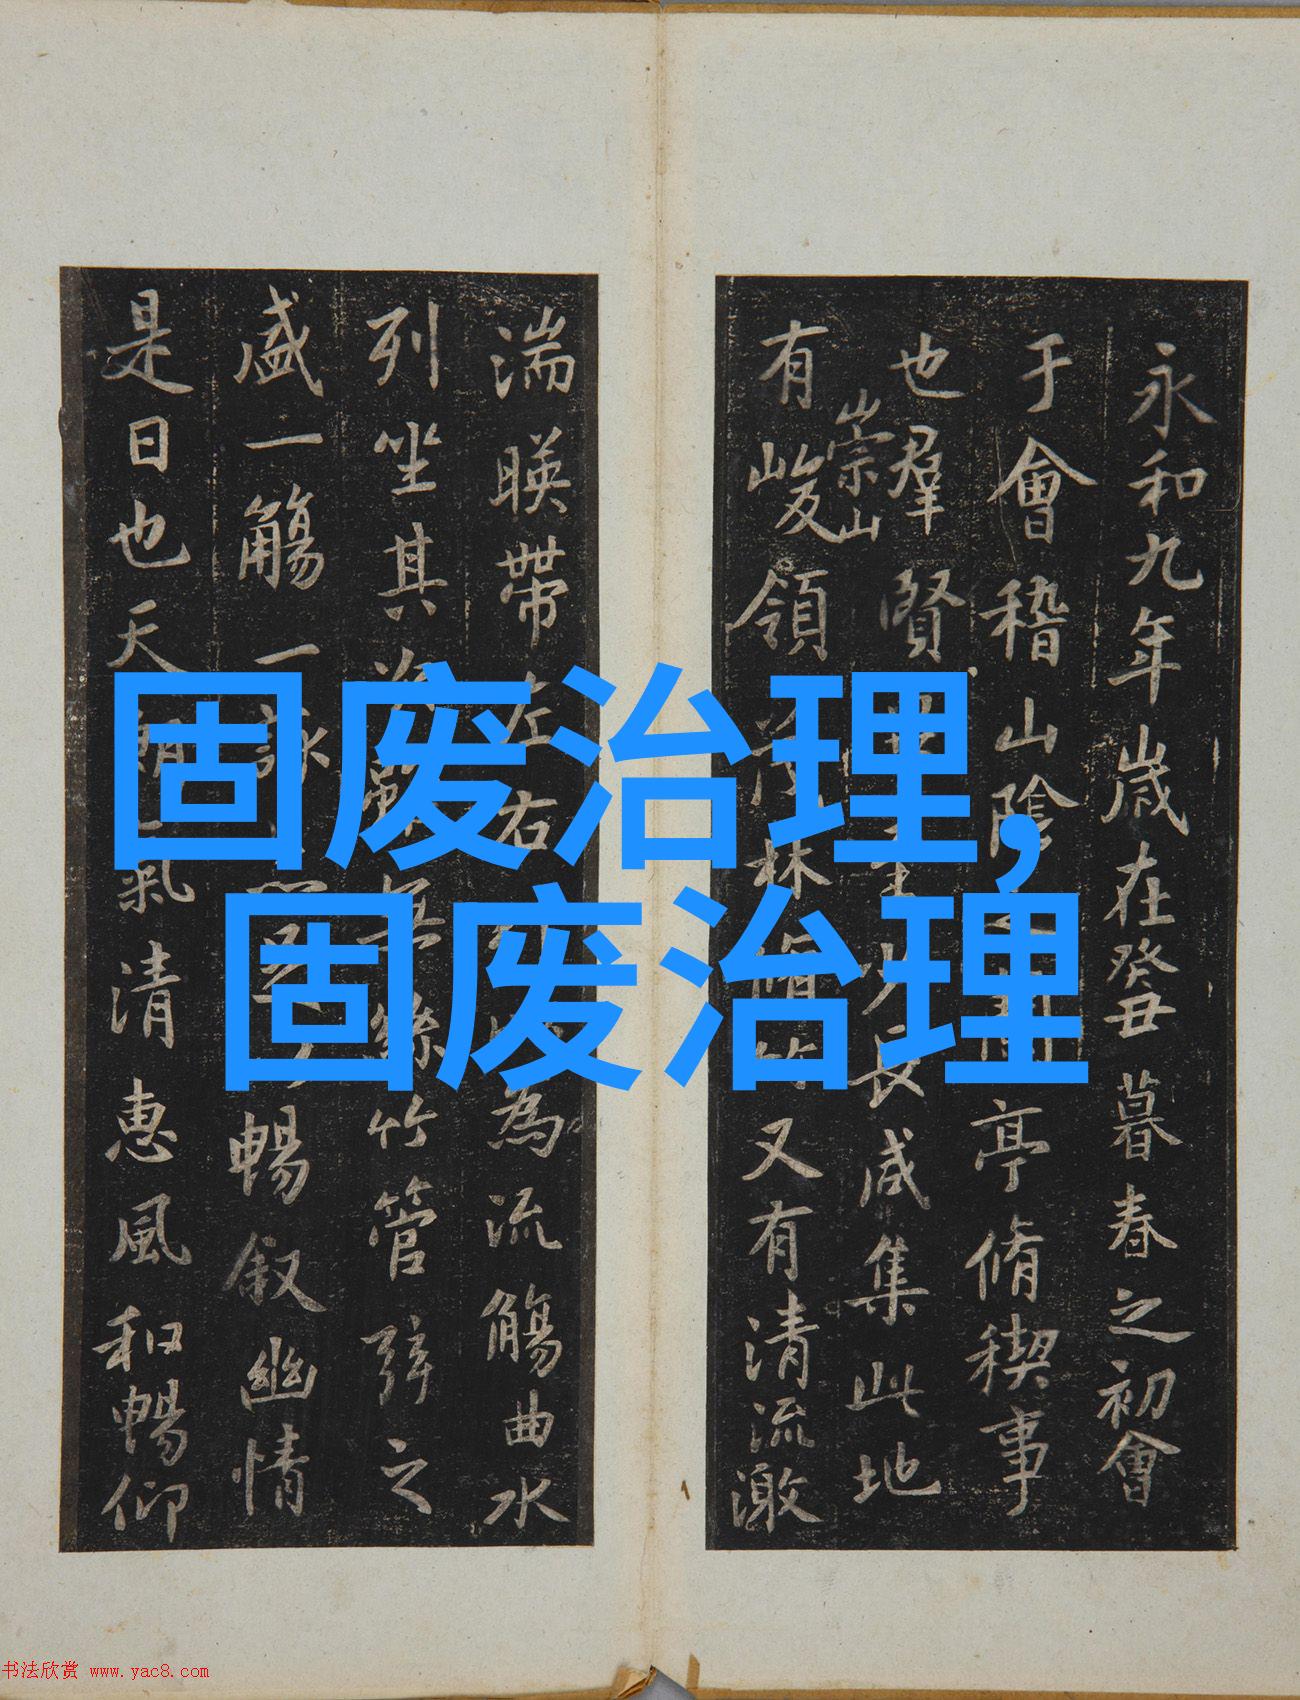 固废治理,
固废治理
永和九年歲在癸丑暮春之初會
于會稽山陰亭脩稧事
也羣賢少長咸集此地
崇山
有峻領茂林脩竹又有清流激
湍暎帶左右為流觴曲水
列坐其無絲竹管弦之
盛一觴一詠暢叙幽情
是日也天朗氣清惠風和暢仰
书法欣赏 www.yac8.com